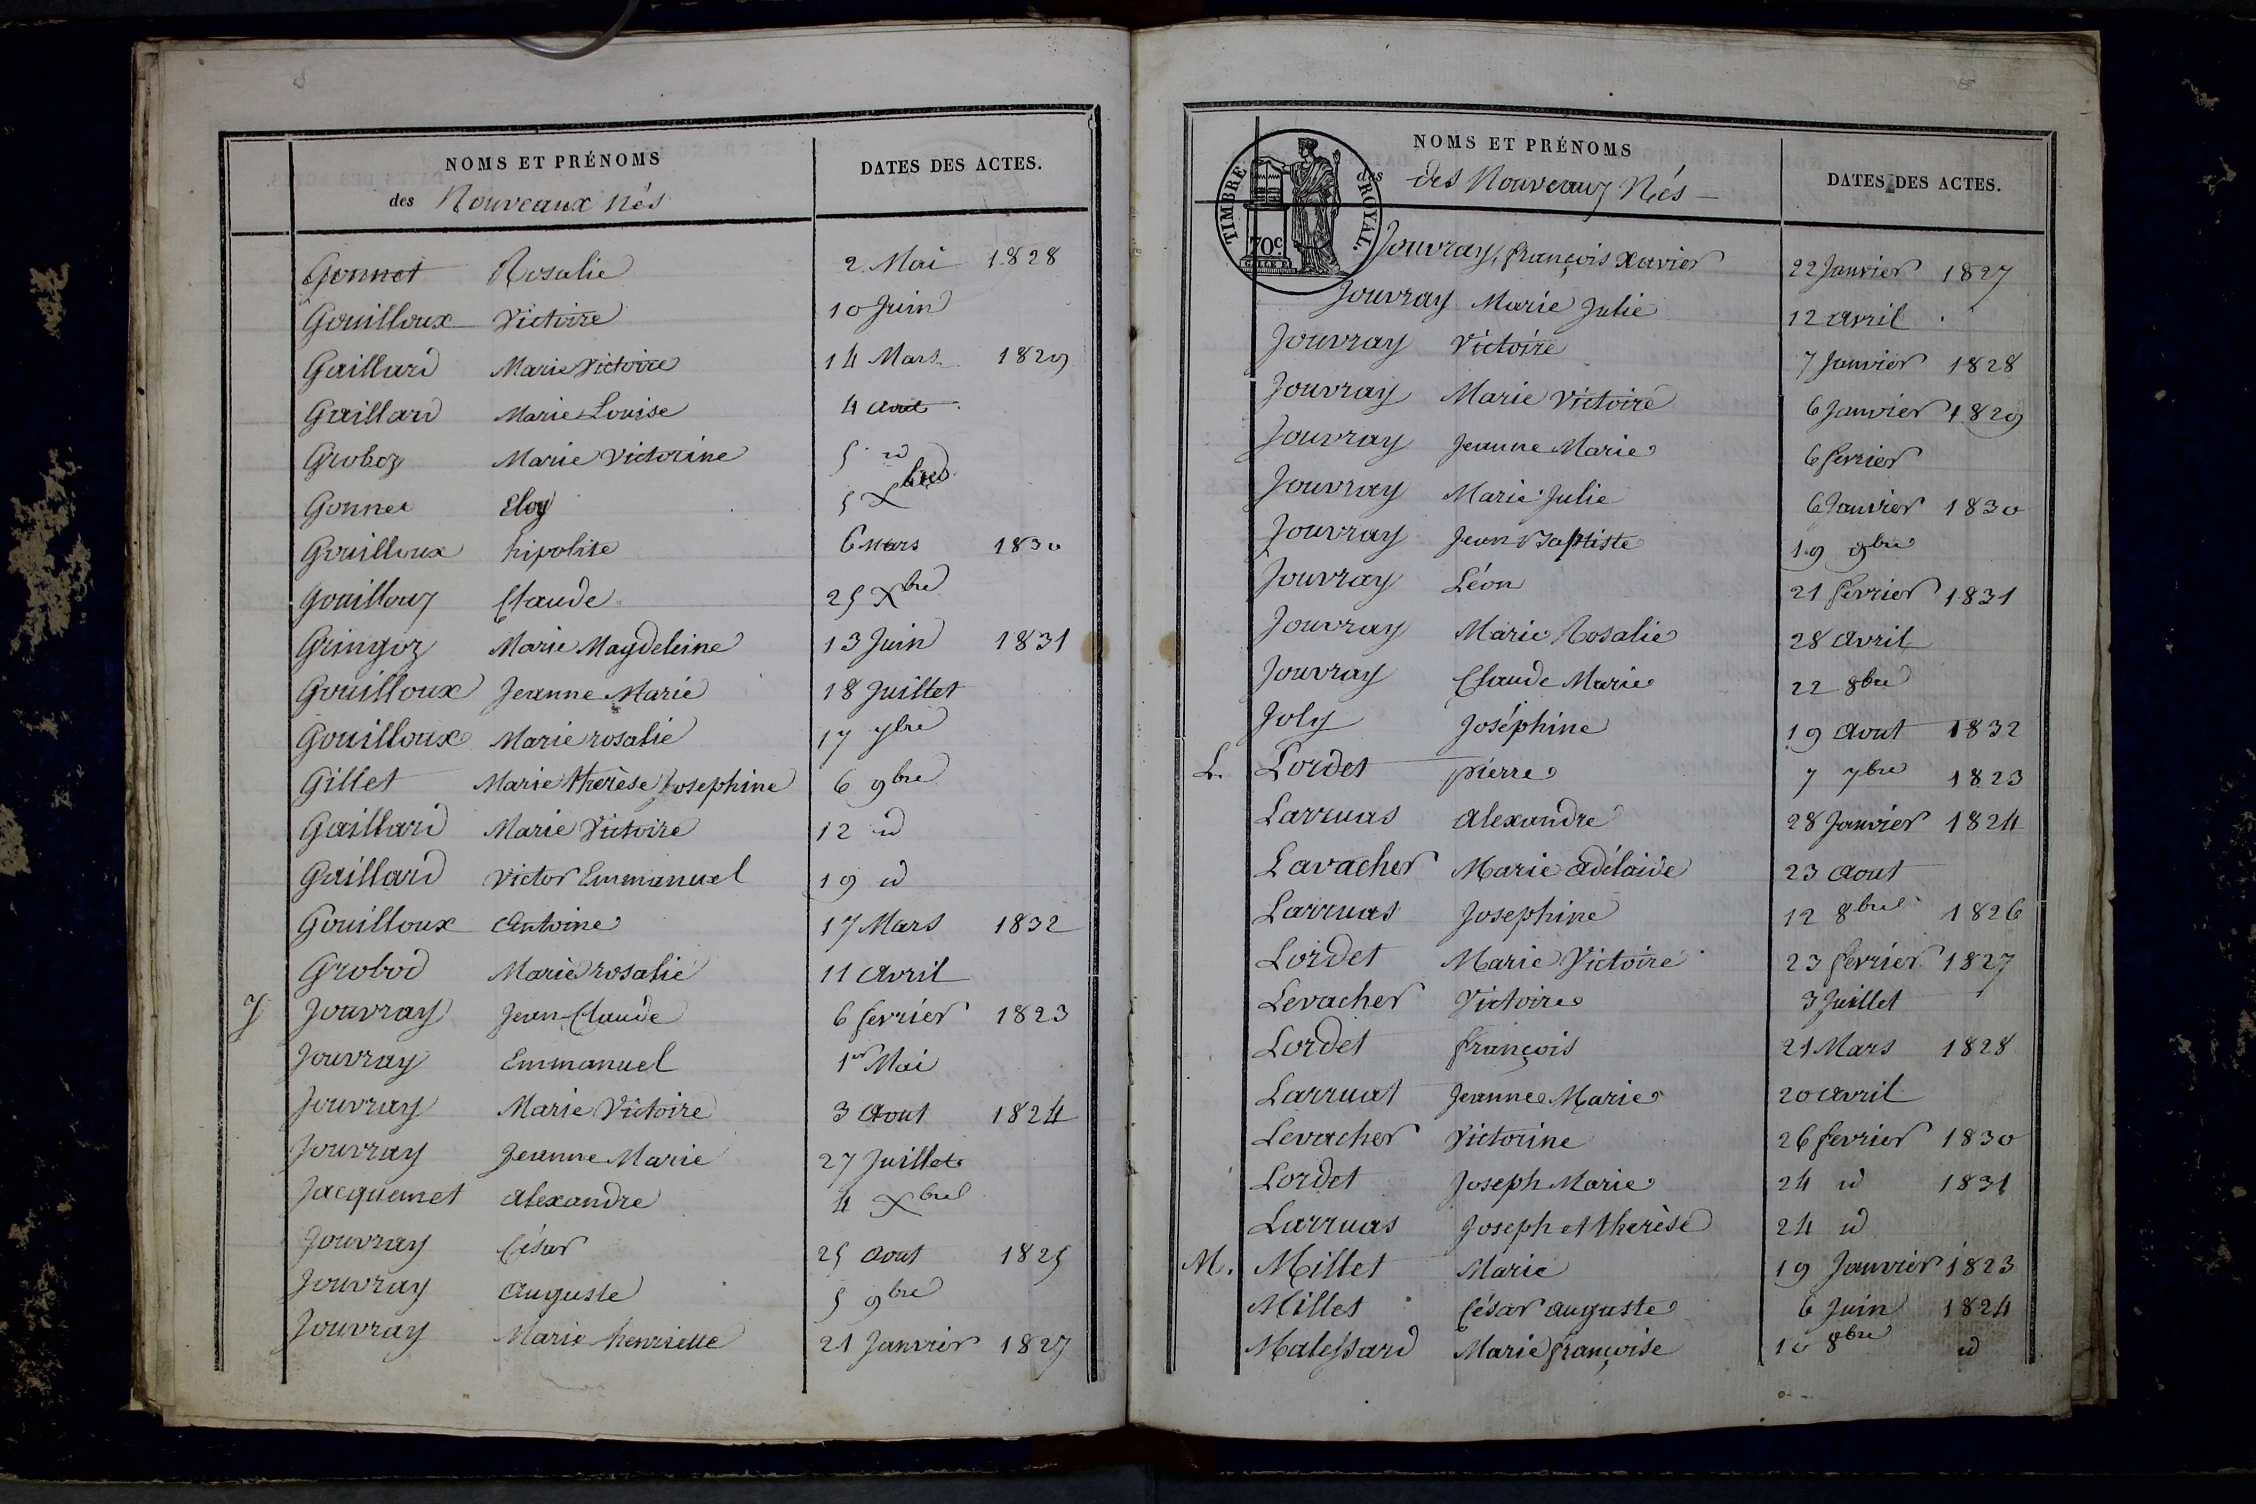 NOMS ET PRÉNOMS
DATES DES ACTES.
des Nouveaux nés
Gonnet Rosalie 2 Mai 1828
Gouilloux Victoire 10 Juin
Gaillard Marie Victoire 14 Mars 1829
Gaillard Marie Louise 4 avril
Groboz Marie Victorine 5 id
Gonnet Eloy 5 Xbre
Gouilloux hipolite 6 mars 1830
Gouilloux Claude 25 Xbre
Gringoz Marie Magdeleine 13 Juin 1831
Gouilloux Jeanne Marie 18 Juillet
Gouilloux Marie rosalie 17 7bre
Gillet Marie thérèse Josephine 6 9bre
Gaillard Marie Victoire 12 id
Gaillard Victor Emmanuel 19 id
Gouilloux Antoine 17 Mars 1832
Grobod Marie rosalie 11 avril
J Jouvray Jean Claude 6 fevrier 1823
Jouvray Emmanuel 1er Mai
Jouvray Marie Victoire 3 Aout 1824
Jouvray Jeanne Marie 27 Juillet
Jacquemet alexandre 4 Xbre
Jouvray César 25 aout 1825
Jouvray auguste 5 9bre
Jouvray Marie henriette 21 Janvier 1827
NOMS ET PRÉNOMS
des des Nouveaux Nés
DATES DES ACTES.
TIMBRE ROYAL.
70c
Jouvray, françois Xavier 22 Janvier 1827
Jouvray Marie Julie 12 avril
Jouvray Victoire 7 Janvier 1828
Jouvray Marie Victoire 6 Janvier 1829
Jouvray Jeanne Marie 6 fevrier
Jouvray Marie Julie 6 Janvier 1830
Jouvray Jean Baptiste 19 9bre
Jouvray Léon 21 fevrier 1831
Jouvray Marie Rosalie 28 avril
Jouvray Claude Marie 22 8bre
Joly Joséphine 19 Aout 1832
L. Lordet pierre 7 7bre 1823
Larruas alexandre 28 Janvier 1824
Lavacher Marie adélaide 23 aout
Larruas Josephine 12 8bre 1826
Lordet Marie Victoire 23 fevrier 1827
Levacher Victoire 3 Juillet
Lordet françois 21 Mars 1828
Larruat Jeanne Marie 20 avril
Levacher Victorine 26 fevrier 1830
Lordet Joseph Marie 24 id 1831
Larruas Joseph et thérèse 24 id
M. Millet Marie 19 Janvier 1823
Millet César auguste 6 Juin 1824
Malessard Marie françoise 10 8bre id